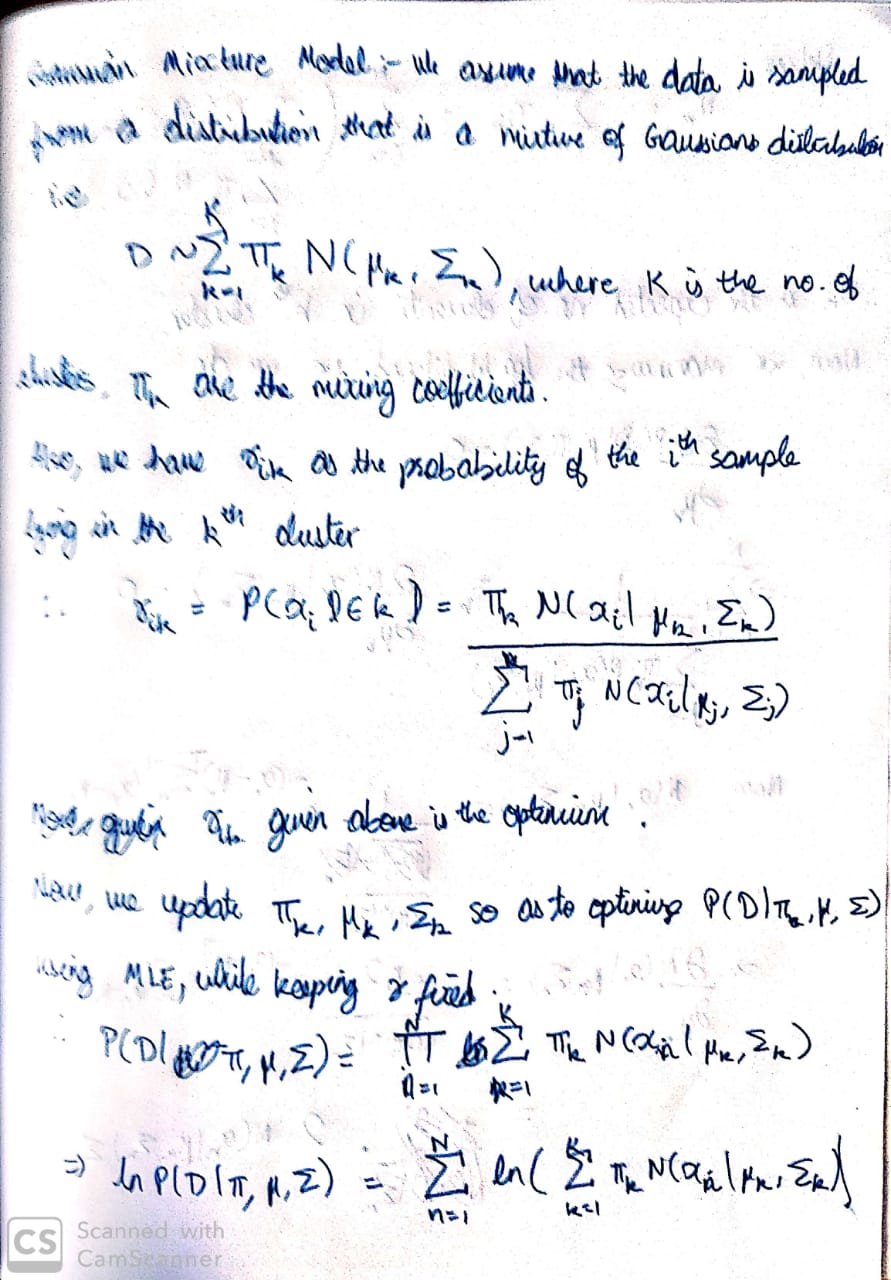 Gaussian Mixture Model :- We assume that the data is sampled
from a distribution that is a mixture of Gaussians distribution
i.e
D ~ ∑_{k=1}^{K} π_k N(μ_k, Σ_k), where K is the no. of
clusters, π_k are the mixing coefficients.
Also, we have γ_{ik} as the probability of the i^{th} sample
lying in the k^{th} cluster
∴ γ_{ik} = P(x_i ∈ k) = π_k N(x_i | μ_k, Σ_k) / ∑_{j=1} π_j N(x_i | μ_j, Σ_j)
γ_{ik} given above is the optimum.
Now, we update π_k, μ_k, Σ_k so as to optimize P(D|π_k, μ, Σ)
using MLE, while keeping γ fixed.
∴ P(D|π, μ, Σ) = ∏_{n=1}^{N} ∑_{k=1}^{K} π_k N(x_n | μ_k, Σ_k)
⇒ ln P(D|π, μ, Σ) = ∑_{n=1}^{N} ln( ∑_{k=1}^{K} π_k N(x_n | μ_k, Σ_k)
CS Scanned with
CamScanner